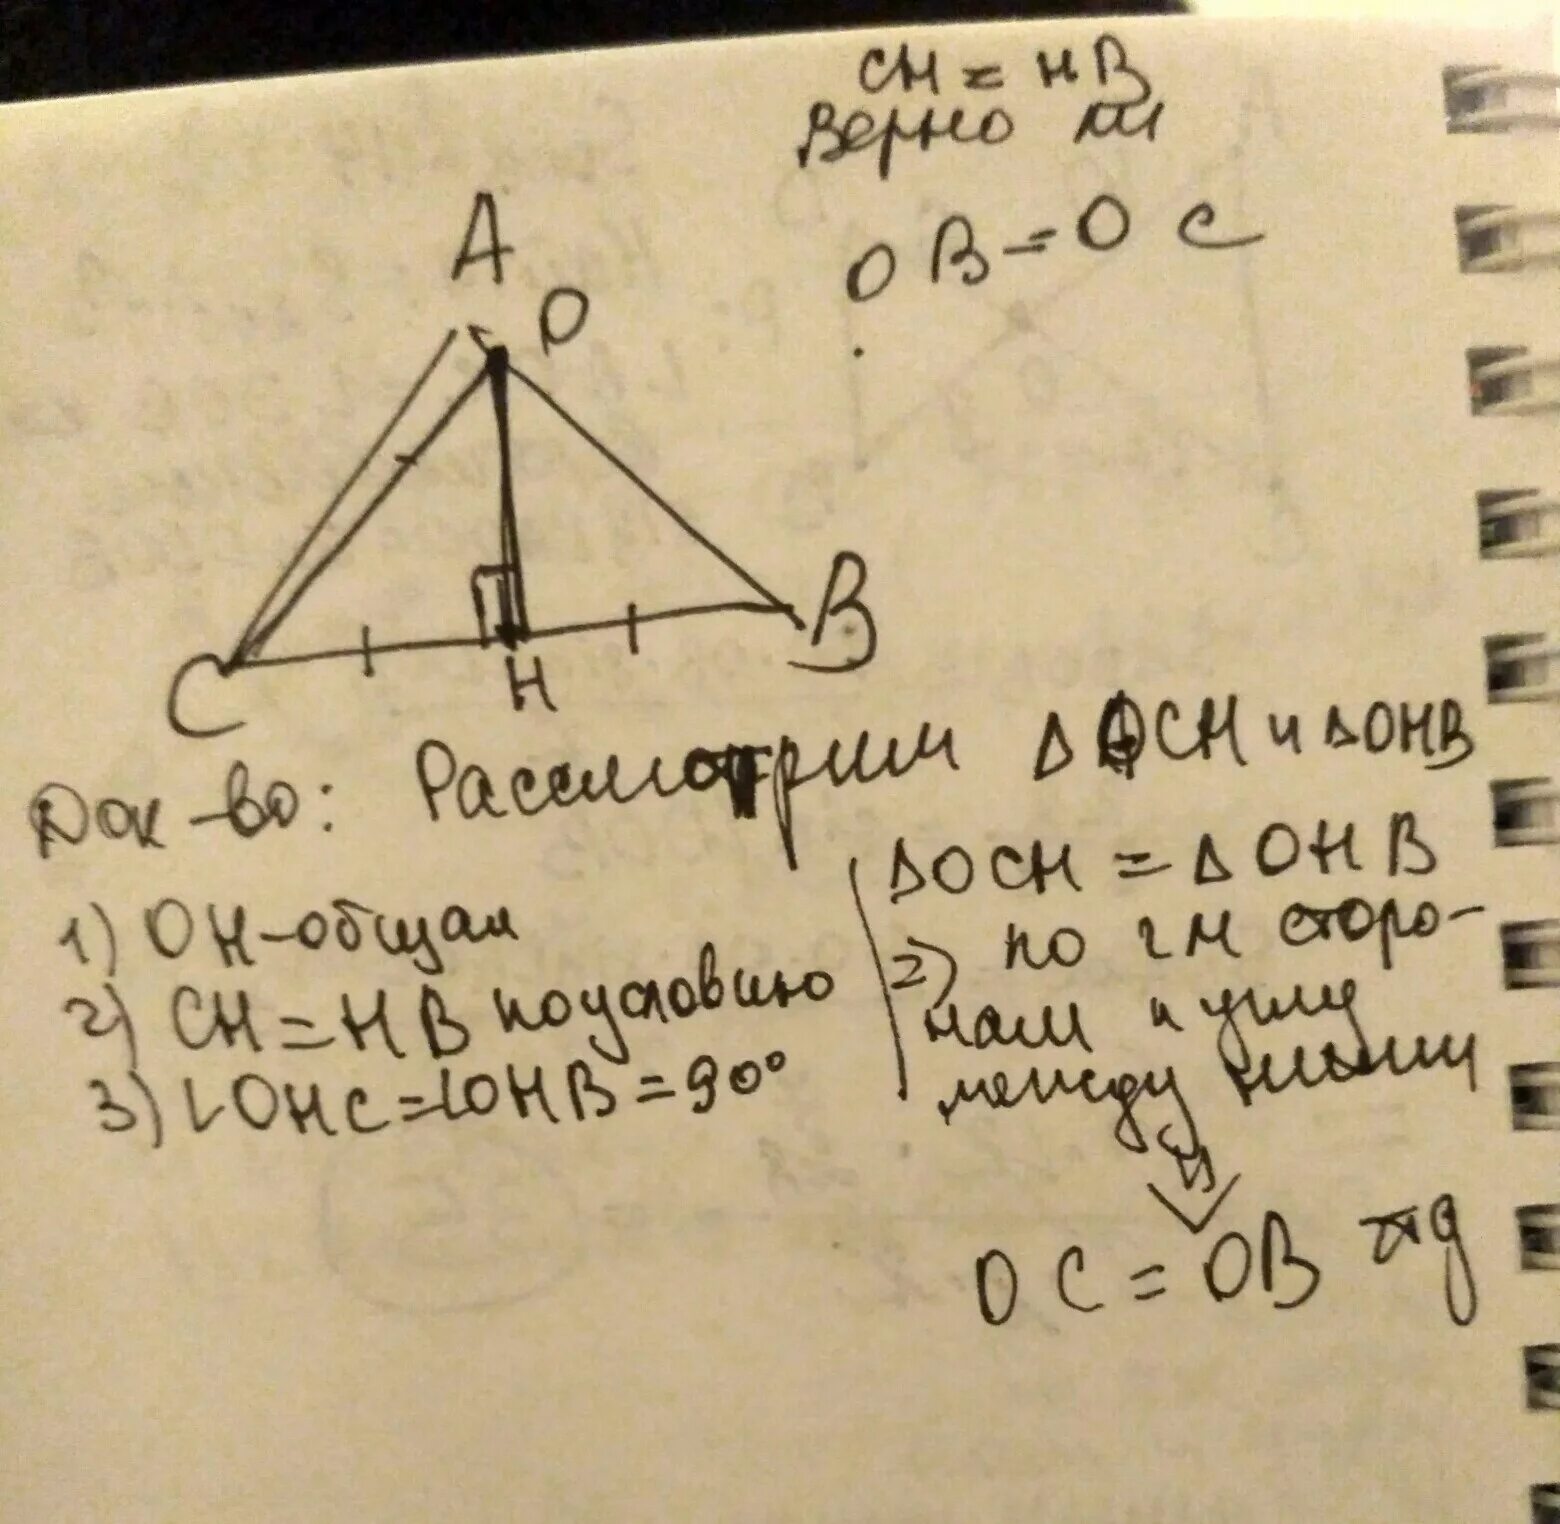 CH = HB
Верно ли
OB = OC
A
O
C
H
B
Док-во: Рассмотрим Δ OCH и ΔOHB
1) OH-общая
2) CH = HB по условию
3) ∠OHC = ∠OHB = 90°
ΔOCH = ΔOHB
2) по 2м сторо-
нам и углу
между ними
⇓
OC = OB